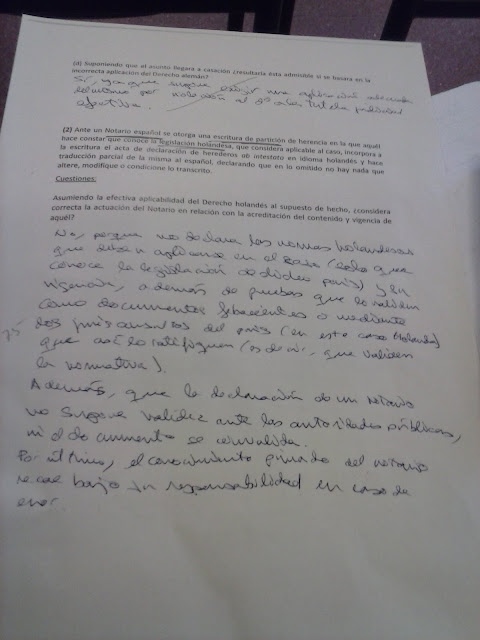 (d) Suponiendo que el asunto llegara a casación ¿resultaría ésta admisible si se basara en la
incorrecta aplicación del Derecho alemán?
Sí, ya que supone exigir una aplicación adecuada
por violación al dº a la tutela judicial
efectiva.
(2) Ante un Notario español se otorga una escritura de partición de herencia en la que aquél
hace constar que conoce la legislación holandesa, que considera aplicable al caso, incorpora a
la escritura el acta de declaración de herederos ab intestato en idioma holandés y hace
traducción parcial de la misma al español, declarando que en lo omitido no hay nada que
altere, modifique o condicione lo transcrito.
Cuestiones:
Asumiendo la efectiva aplicabilidad del Derecho holandés al supuesto de hecho, ¿considera
correcta la actuación del Notario en relación con la acreditación del contenido y vigencia de
aquél?
No, porque no declara las normas holandesas
que deben aplicarse en el caso (solo que
conoce la legislación de dicho país) y su
vigencia, además de pruebas que lo validen
como documentos fehacientes o mediante
dos jurisconsultos del país (en este caso Holanda)
que así lo ratifiquen (es decir, que validen
la normativa).
Además, que la declaración de un notario
no supone validez ante las autoridades públicas,
ni el documento se convalida.
Por último, el conocimiento privado del notario
recae bajo su responsabilidad en caso de
error.